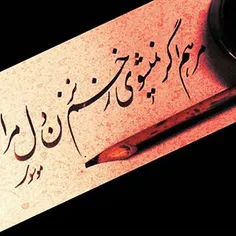 مرهم اگر نمیشوی زخم نزن دل مرا